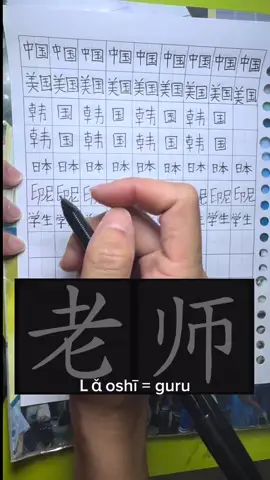 中国 中国 中国 中国 中国 中国 中国 中国
美国 美国 美国 美国 美国 美国 美国 美国
韩国 韩国 韩国 韩国
韩国 韩国 韩国 韩国
日本 日本 日本 日本 日本 日本 日本 日本
印尼 印尼 印尼 印尼 印尼 印尼
学生 学生 学生 学生 学生
老师
Lǎoshī = guru